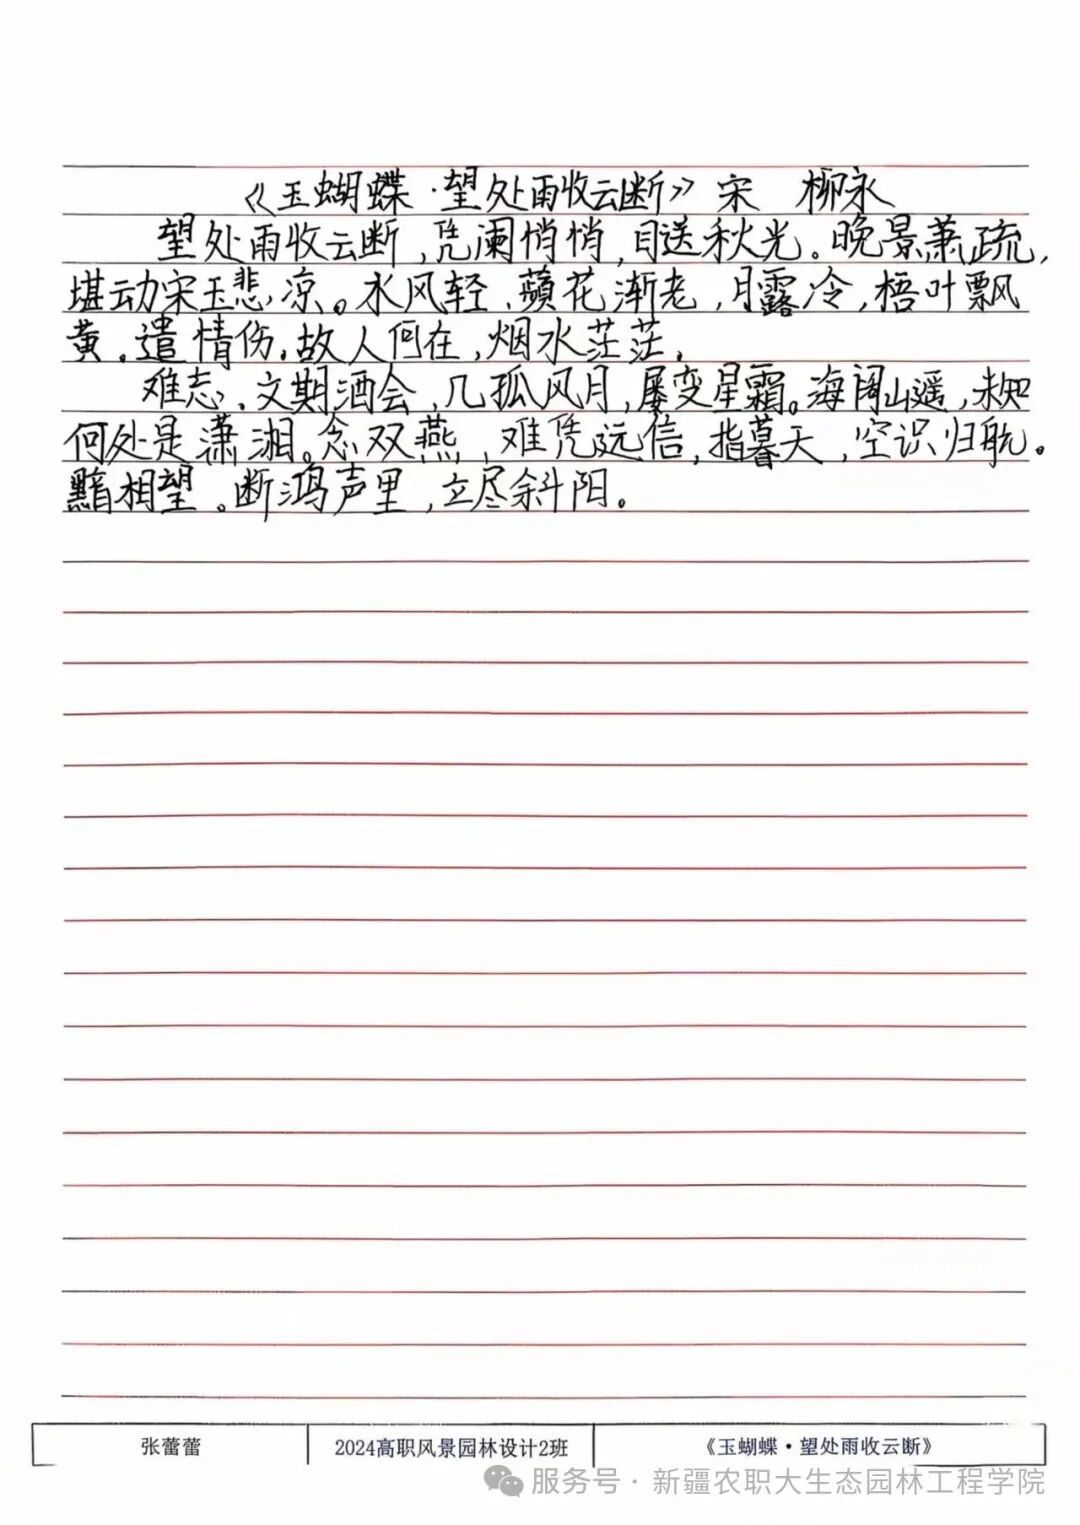 《玉蝴蝶·望处雨收云断》宋 柳永
望处雨收云断,凭阑悄悄,目送秋光。晚景萧疏,
堪动宋玉悲凉。水风轻,蘋花渐老,月露冷,梧叶飘
黄。遣情伤。故人何在,烟水茫茫。
难忘,文期酒会,几孤风月,屡变星霜。海阔山遥,未知
何处是潇湘。念双燕,难凭远信,指暮天,空识归航。
黯相望。断鸿声里,立尽斜阳。
张蕾蕾 2024高职风景园林设计2班 《玉蝴蝶·望处雨收云断》
服务号·新疆农职大生态园林工程学院